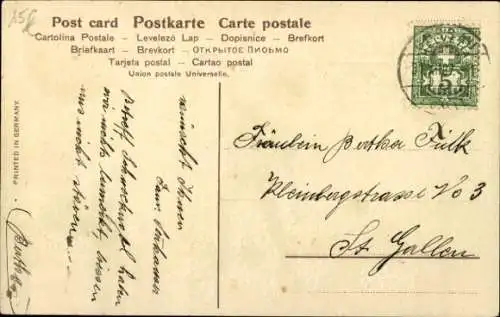 Post card Postkarte Carte postale
Cartolina Postale – Levelező Lap – Dopisnice – Brefkort
Briefkaart – Brevkort – ОТКРЫТОЕ ПИСЬМО
Tarjeta postal – Cartao postal
Union postale Universelle.
PRINTED IN GERMANY.
wünscht Ihnen
Fam.
Betreff haben
wir nichts bemerkt, lassen
uns nicht stören
Fräulein Berthar Fülk
Kleinbergstrasse No 3
St. Gallen
HELVETIA